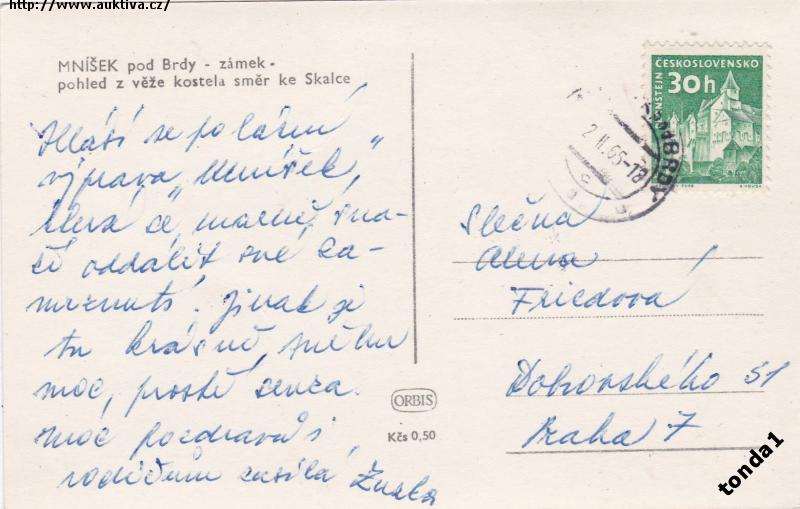 http://www.auktiva.cz/
MNÍŠEK pod Brdy - zámek -
pohled z věže kostela směr ke Skalce
Hlásí se polární
výprava „Mníšek”,
která se marně sna-
ží oddálit své za-
mrznutí. Jinak je
tu krásně, sněhu
moc, prostě senza.
moc pozdravů i
rodičům zasílá Zuzka
ČESKOSLOVENSKO
30h
2.II.65-18
BRDY
Slečna
Alena
Friedová
Dobrovského 51
Praha 7
ORBIS
Kčs 0,50
tonda1